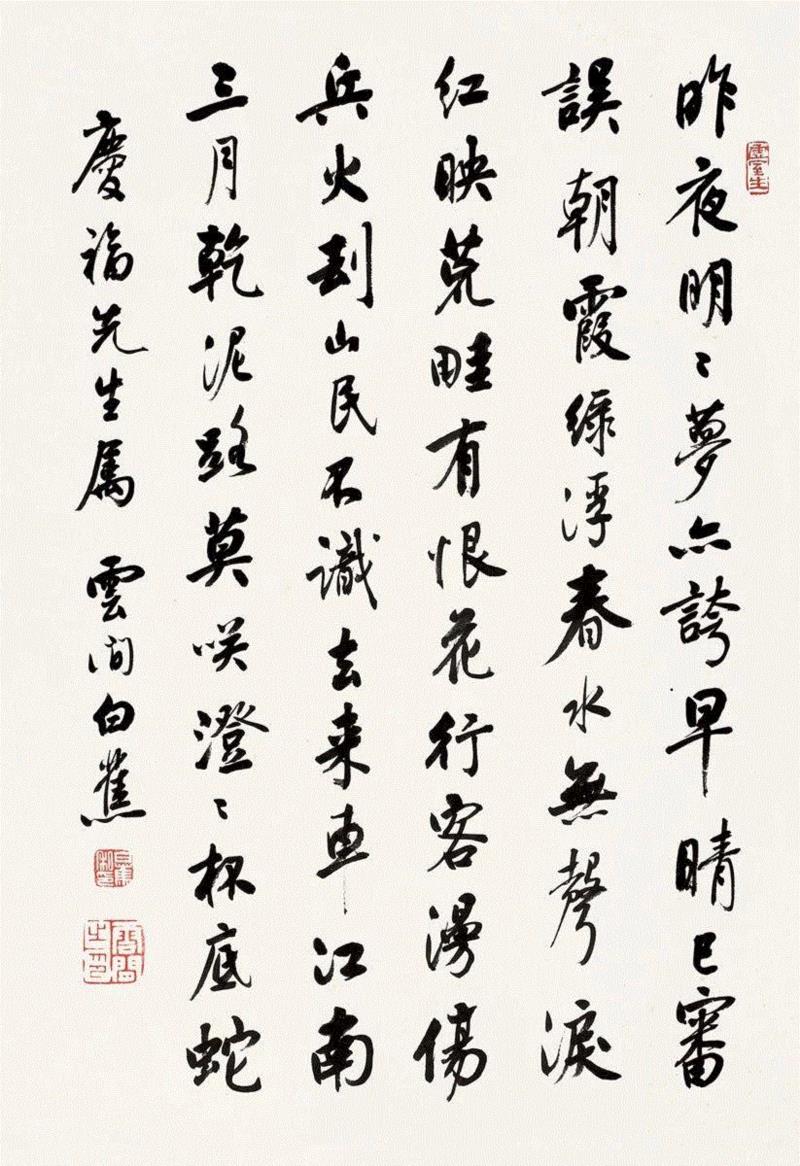 虛室生
昨夜明〻夢亦誇早晴已審
誤朝霞綠浮春水無聲淚
紅映荒畦有恨花行客漫傷
兵火刦山民不識去来車江南
三月乾泥路莫咲澄〻杯底蛇
慶福先生属 雲间白蕉